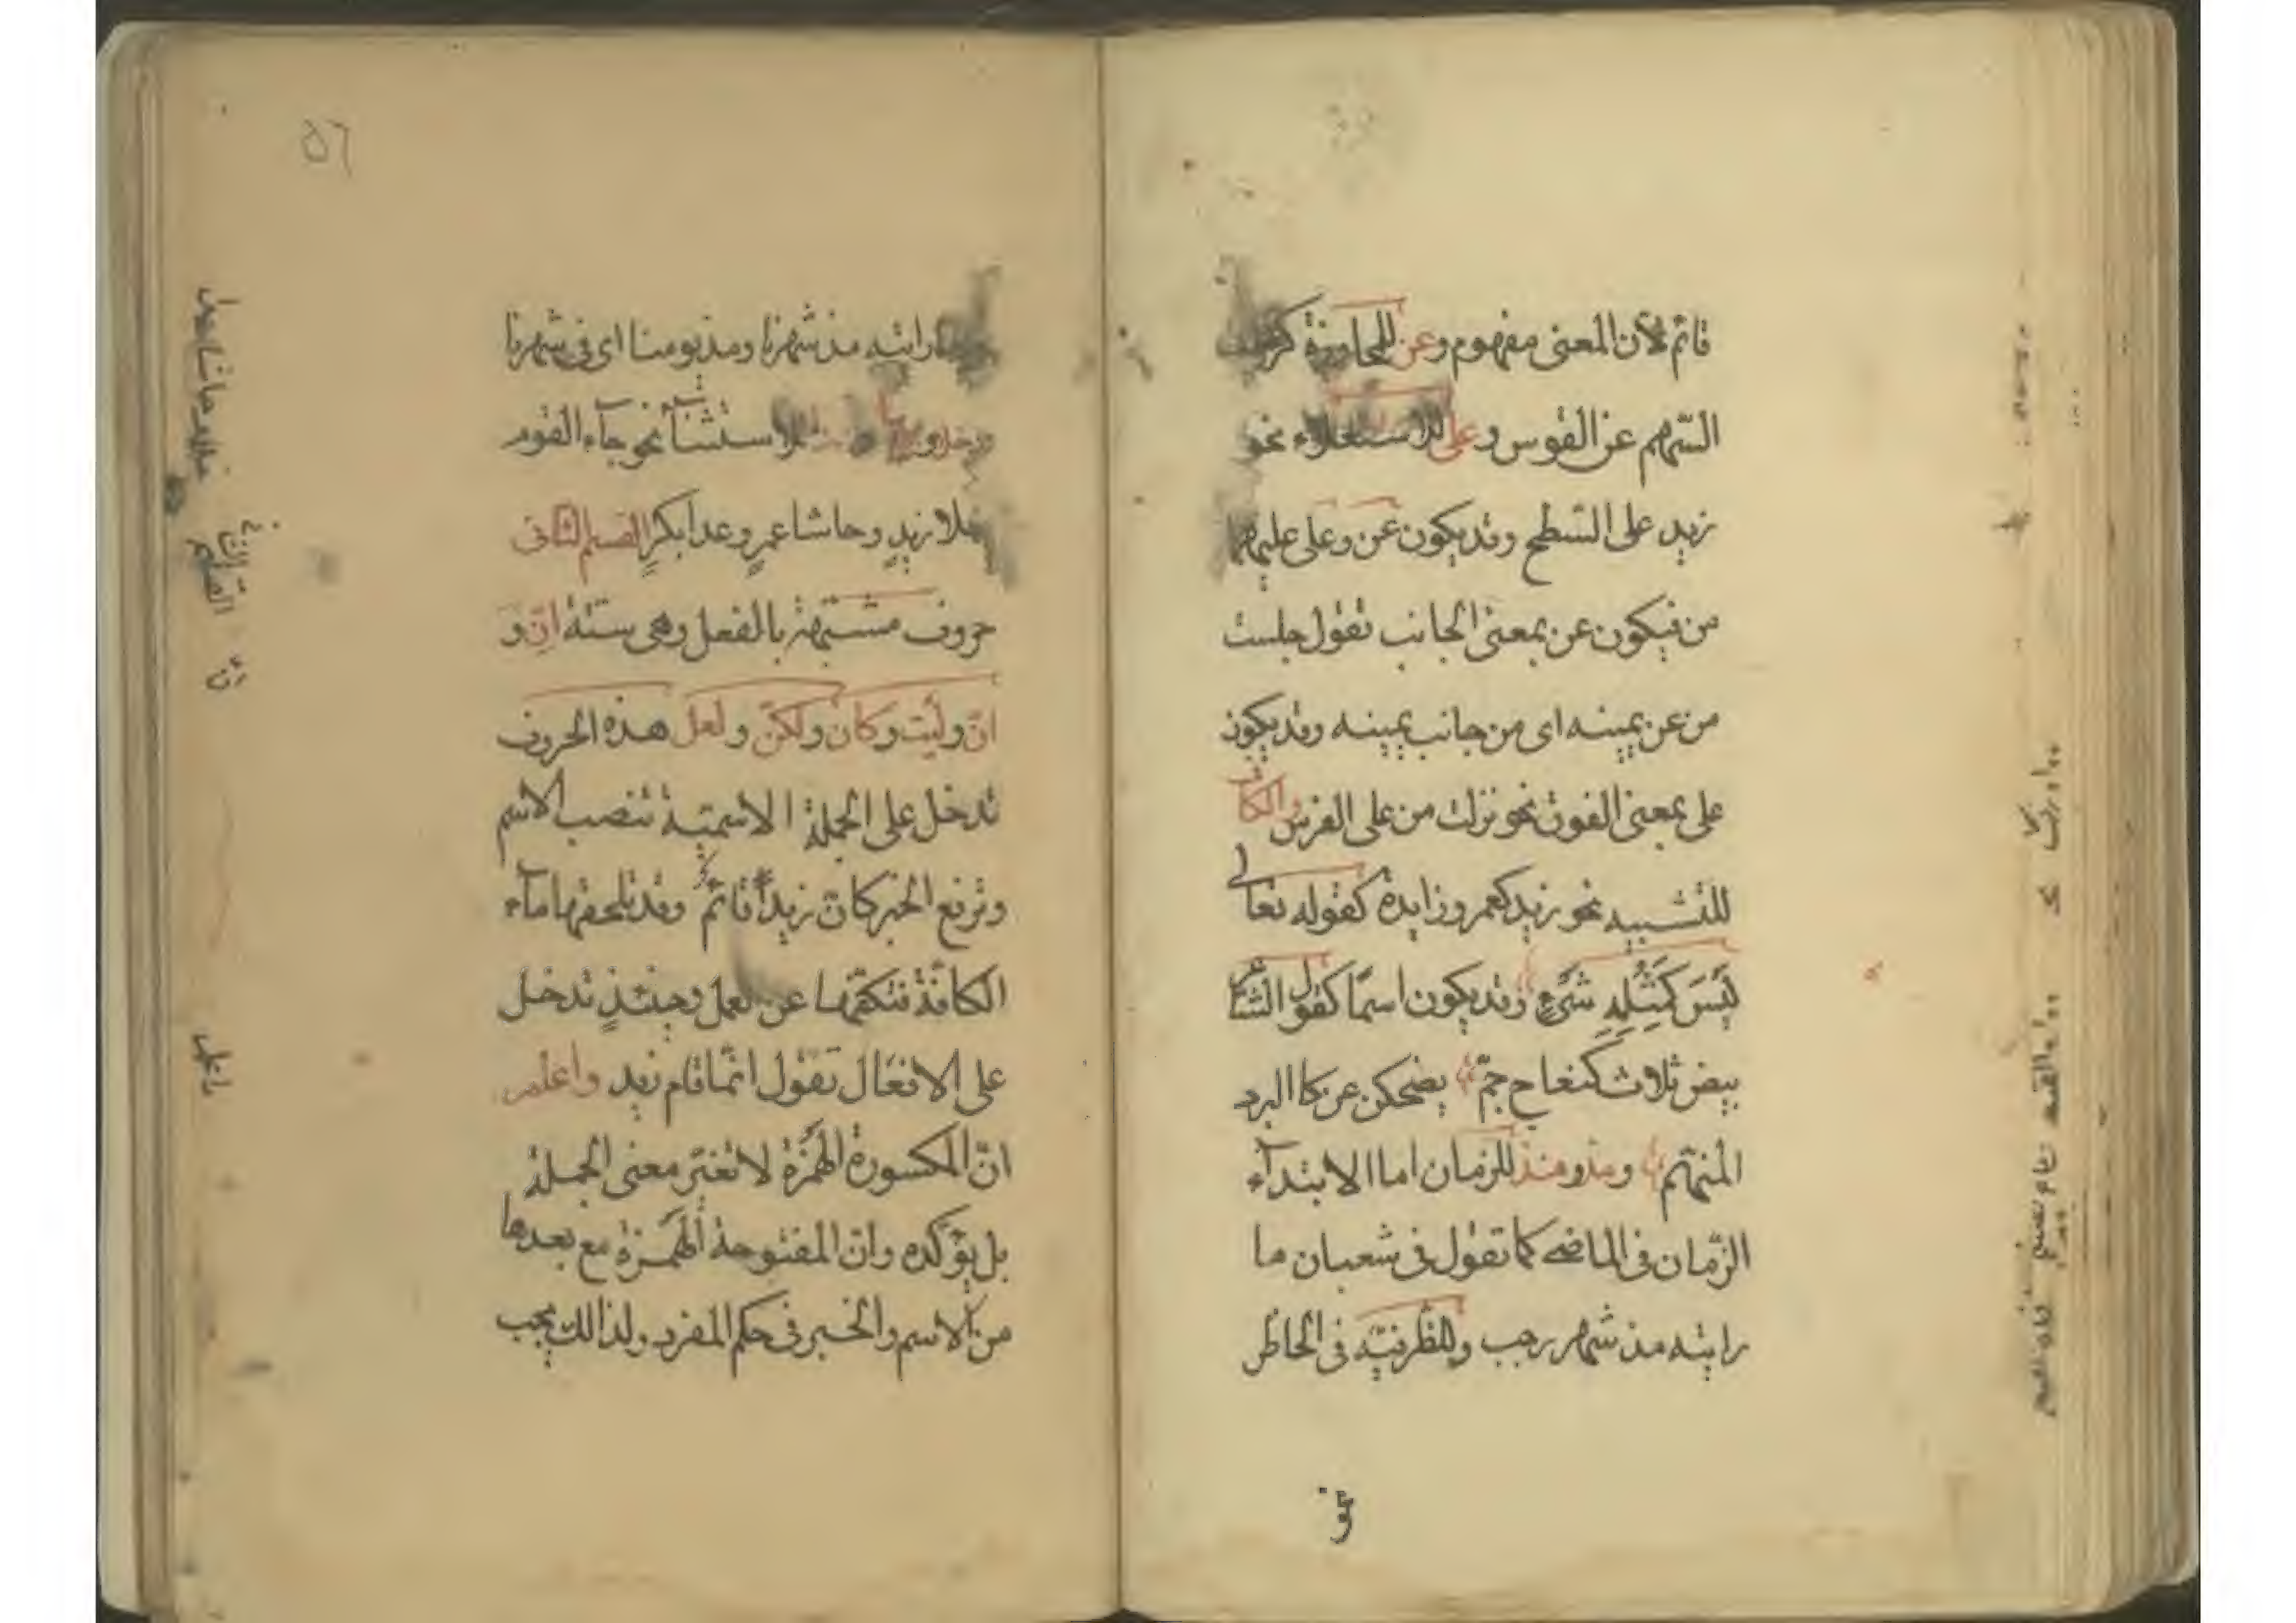 قائم لأن المعنى مفهوم وعن للمجاوزة كرميت
السّهم عن القوس وعلى للاستعلاء نحو
زيد على السّطح وقد يكون عن وعلى عليهما
من فيكون عن بمعنى الجانب تقول جلست
من عن يمينه اى من جانب يمينه وقد يكون
على بمعنى الفوق نحو نزلت من على الفرس والكاف
للتشبيه نحو زيد كعمر وزايدة كقوله تعالى
لَيْسَ كَمِثْلِهِ شَىْءٍ وقد يكون اسمًا كقول الشاعر
بيض ثلاث كنعاج جمّ يضحكن عن كا البرد
المنهمّ ومذ ومنذ للزمان اما الابتدآء
الزّمان فى الماضى كما تقول فى شعبان ما
رايته مذ شهر رجب وللظرفيّة فى الحاظر
رايته مذ شهرنا ومذ يومنا اى فى شهرنا
وخلا و للاستثنآء نحو جآء القوم
خلا زيدٍ وحاشا عمرٍ وعدا بكرٍ القسم الثانى
حروف مشبّهة بالفعل وهى ستّة اِنّ و
انّ وليت وكان ولكنّ ولعل هذه الحروف
تدخل على الجملة الاسميّة تنصب الاسم
وترفع الخبر كان زيداً قائم وقد يلحقها مآء
الكافّة فتكفّها عن لعمل وحينئذٍ تدخل
على الافعال تقول انّما قام زيد واعلم
انّ المكسورة الهمزة لا تغيّر معنى الجملة
بل يؤكده وانّ المفتوحة الهمزة مع بعدها
من الاسم والخبر فى حكم المفرد ولذالك يجب